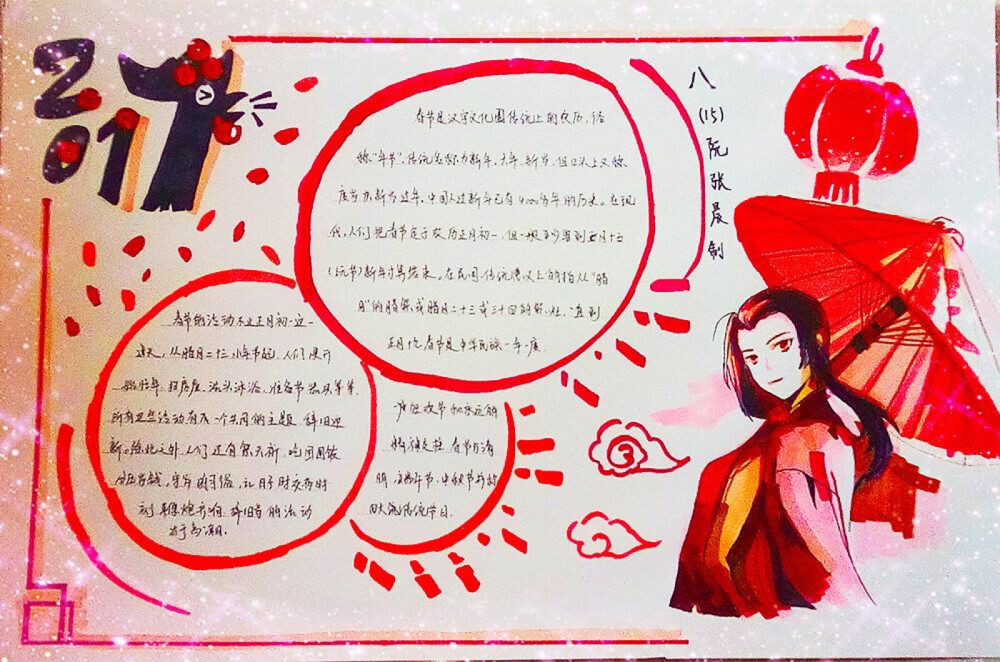 2017
春节是汉字文化圈传统上的农历
称“年节”,传统名称为新年、大年、新岁,但口头上又称
度岁、庆新岁、过年,中国人过新年已有4000多年的历史。在现
代,人们把春节定于农历正月初一,但一般至少要到正月十五
(上元节)新年才算结束。在民间,传统意义上的指从“腊
月”的腊祭或腊月二十三或二十四的祭灶,一直到
正月十九 春节是中华民族一年一度
春节的活动不止正月初一这一
天,从腊月二十三小年节起,人们便开
年、扫房屋、洗头沐浴、准备节器具等等,
所有这些活动有一个共同的主题 辞旧迎
新。除此之外 人们还有祭天祈 吃团圆饭
给压岁钱,守岁的习俗,让子时交与时
刻 爆炮齐响 辞旧岁的活动
于高潮。
春节与清
明、端午节、中秋节并称
四大传统节日。
八
(15)
阮
张
晨
制
3
2